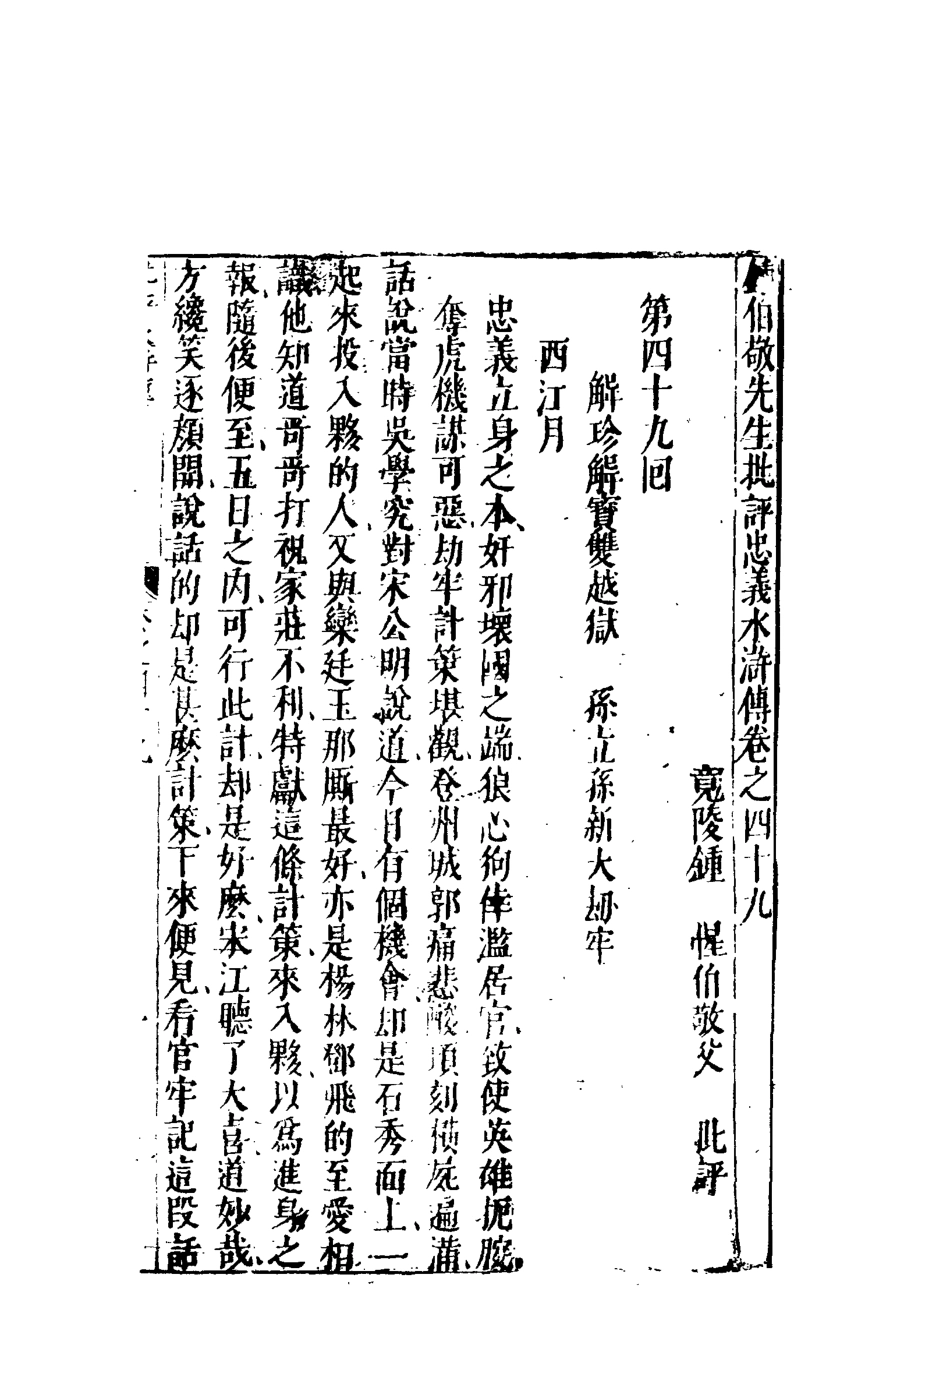 鍾伯敬先生批評忠義水滸傳卷之四十九
竟陵鍾　惺伯敬父　批評
第四十九回
解珍解寶雙越獄　孫立孫新大劫牢
西江月
忠義立身之本、奸邪壞國之端狼心狗倖濫居官、致使英雄扼腕、
奪虎機謀可惡、劫牢計策堪觀、登州城郭痛悲酸頃刻橫屍遍滿、
話說當時吳學究對宋公明說道、今日有個機會、却是石秀面上、一
起來投入夥的人、又與欒廷玉那厮最好、亦是楊林鄧飛的至愛相
識、他知道哥哥打祝家莊不利、特獻這條計策來入夥、以爲進身之
報、隨後便至、五日之內、可行此計、却是好麽、宋江聽了大喜道妙哉、
方纔笑逐顔開、說話的却是甚麽計策、下來便見、看官牢記這段話